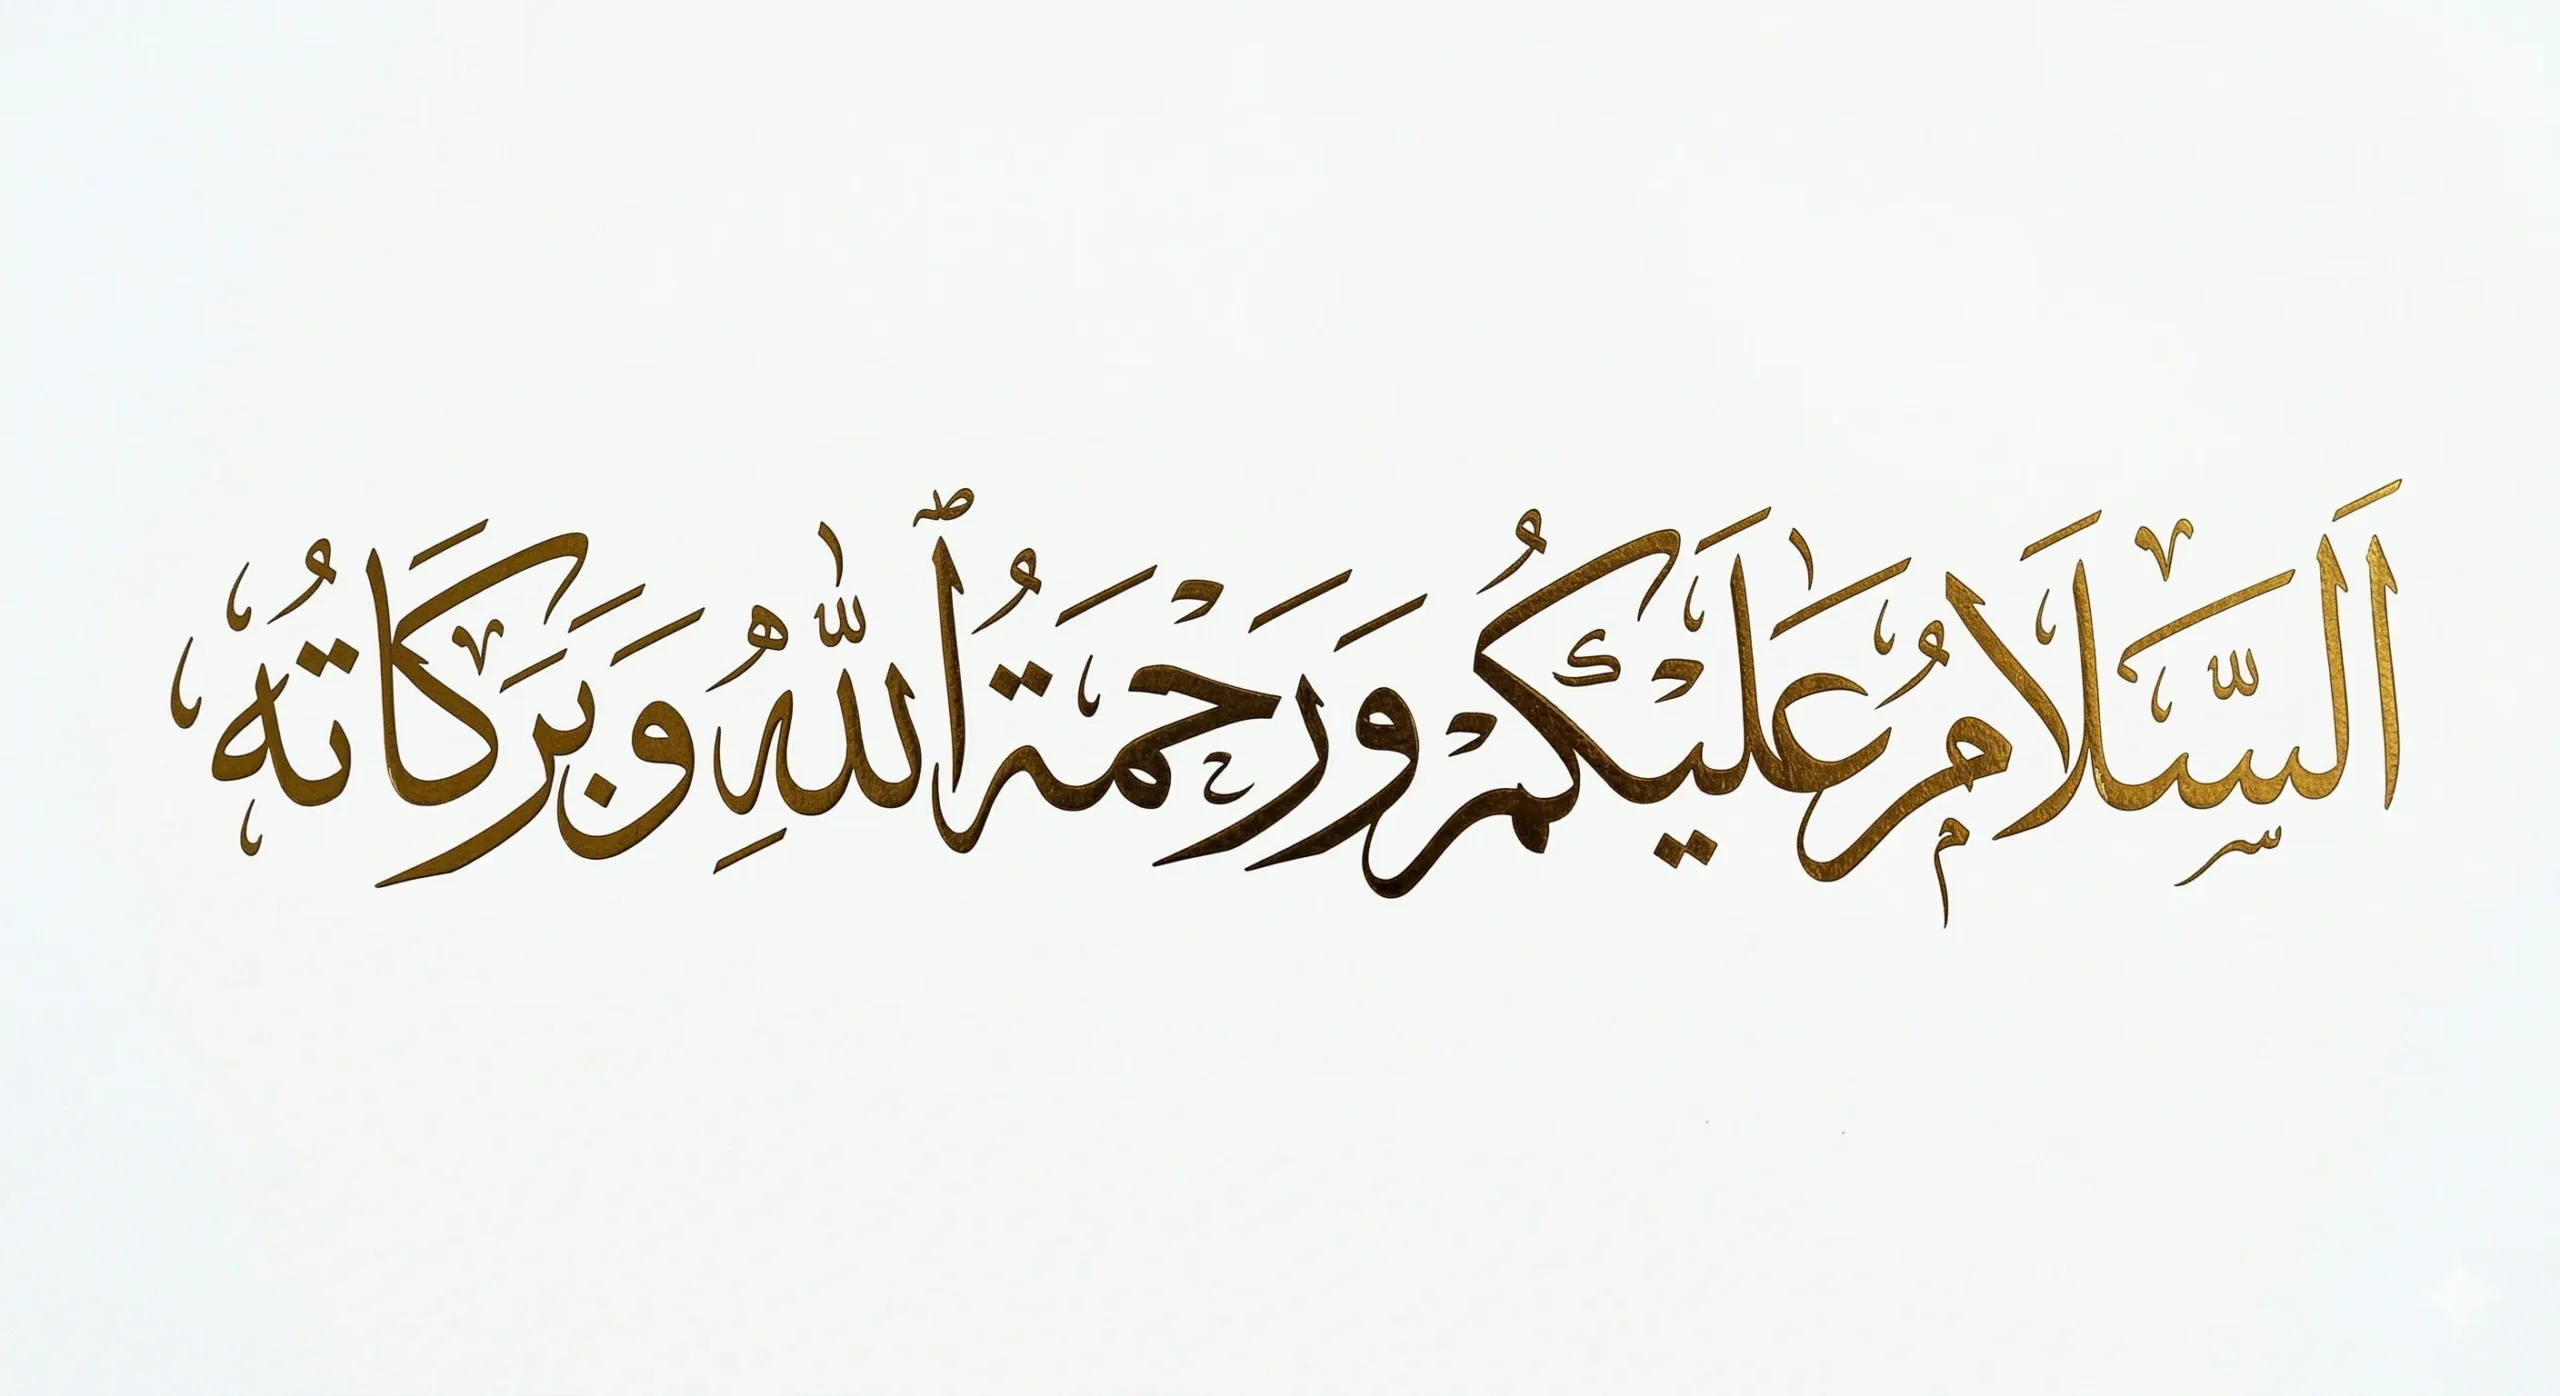 اَلسَّلَامُ عَلَيْكُمْ وَرَحْمَةُ ٱللّٰهِ وَبَرَكَاتُهُ